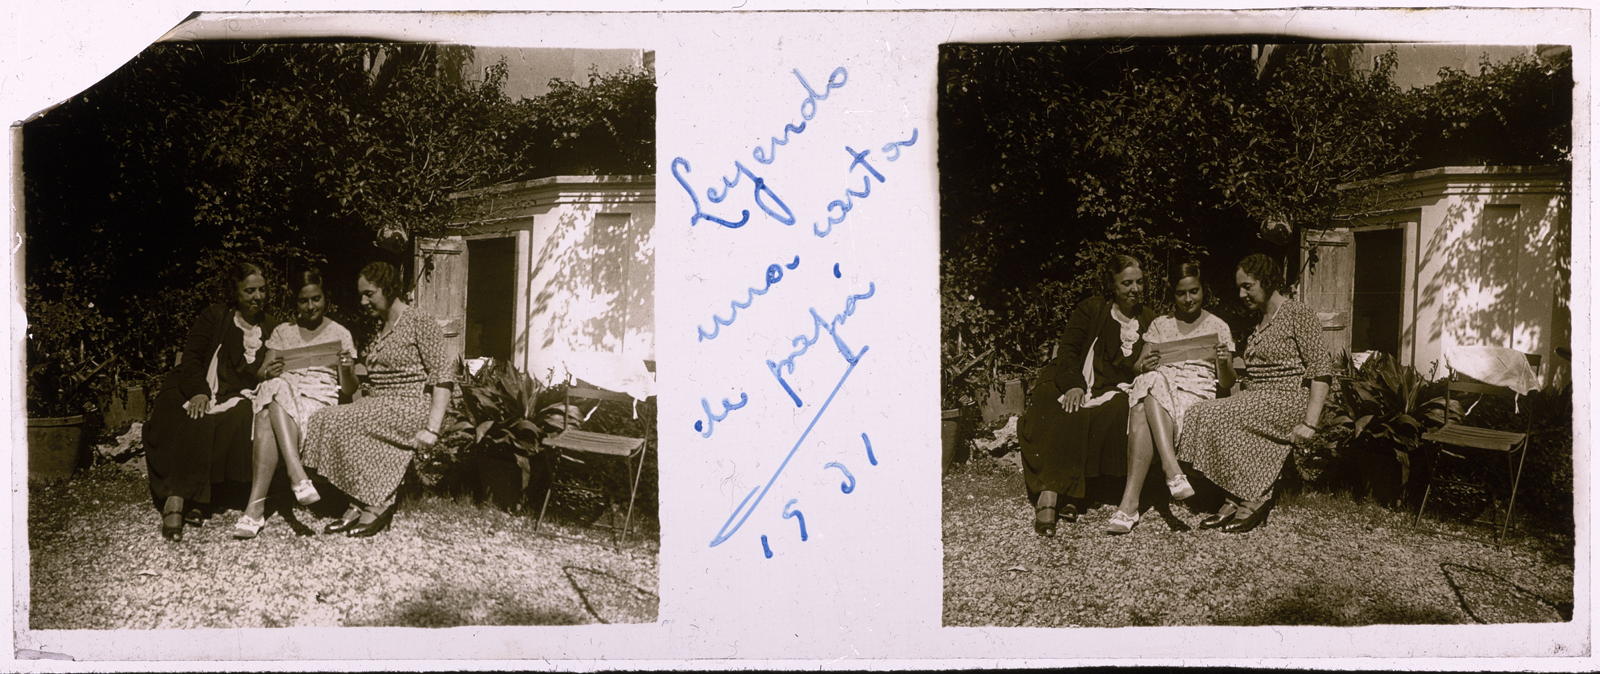 Leyendo
una carta
de papá
1931